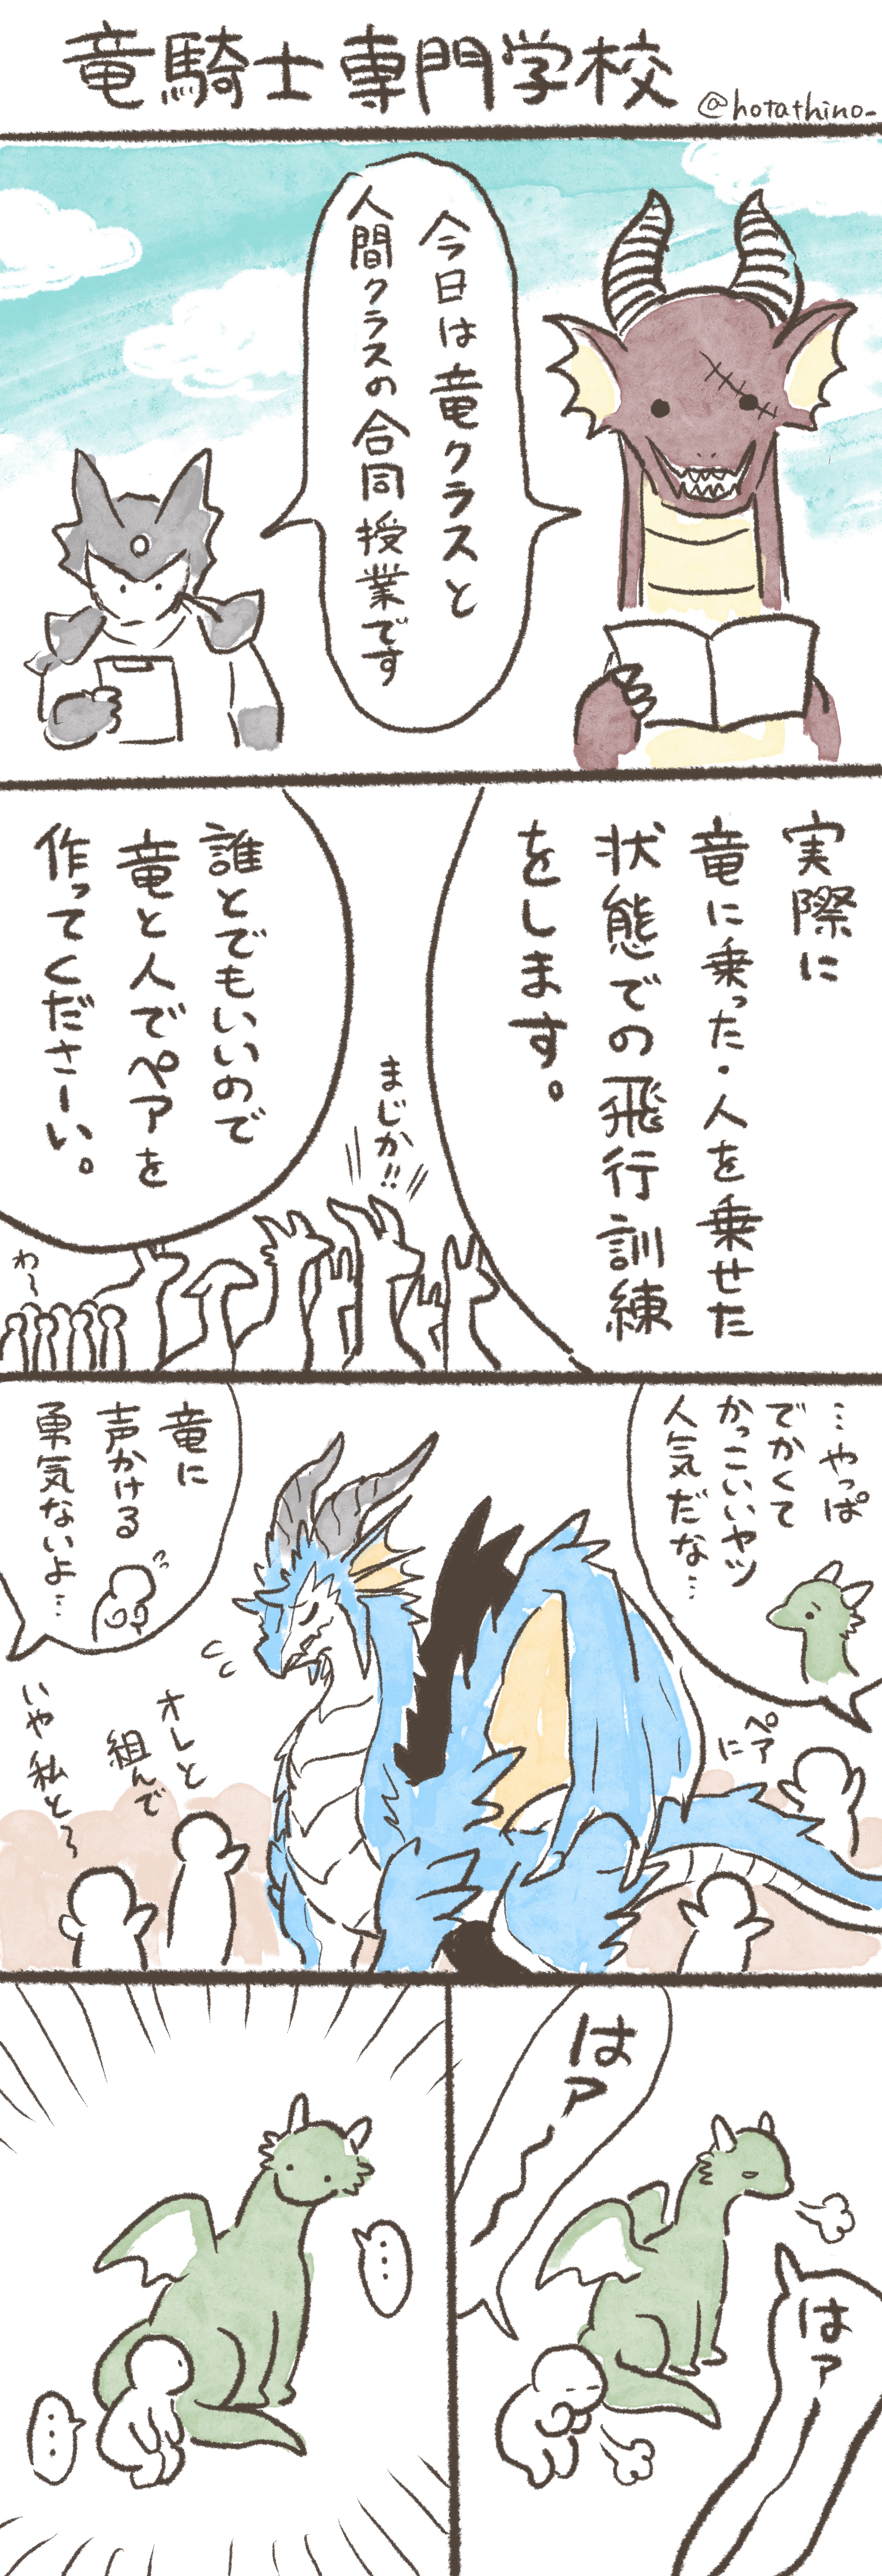 竜騎士専門学校
@hotathino_
今日は竜クラスと
人間クラスの合同授業です
実際に
竜に乗った・人を乗せた
状態での飛行訓練
をします。
まじか!!
誰とでもいいので
竜と人でペアを
作ってくださーい。
わ〜
…やっぱ
でかくて
かっこいいヤツ
人気だな…
ペア
に
竜に
声かける
勇気ないよ…
オレと
組んで
いや私と〜
はァ〜
はァ
…
…